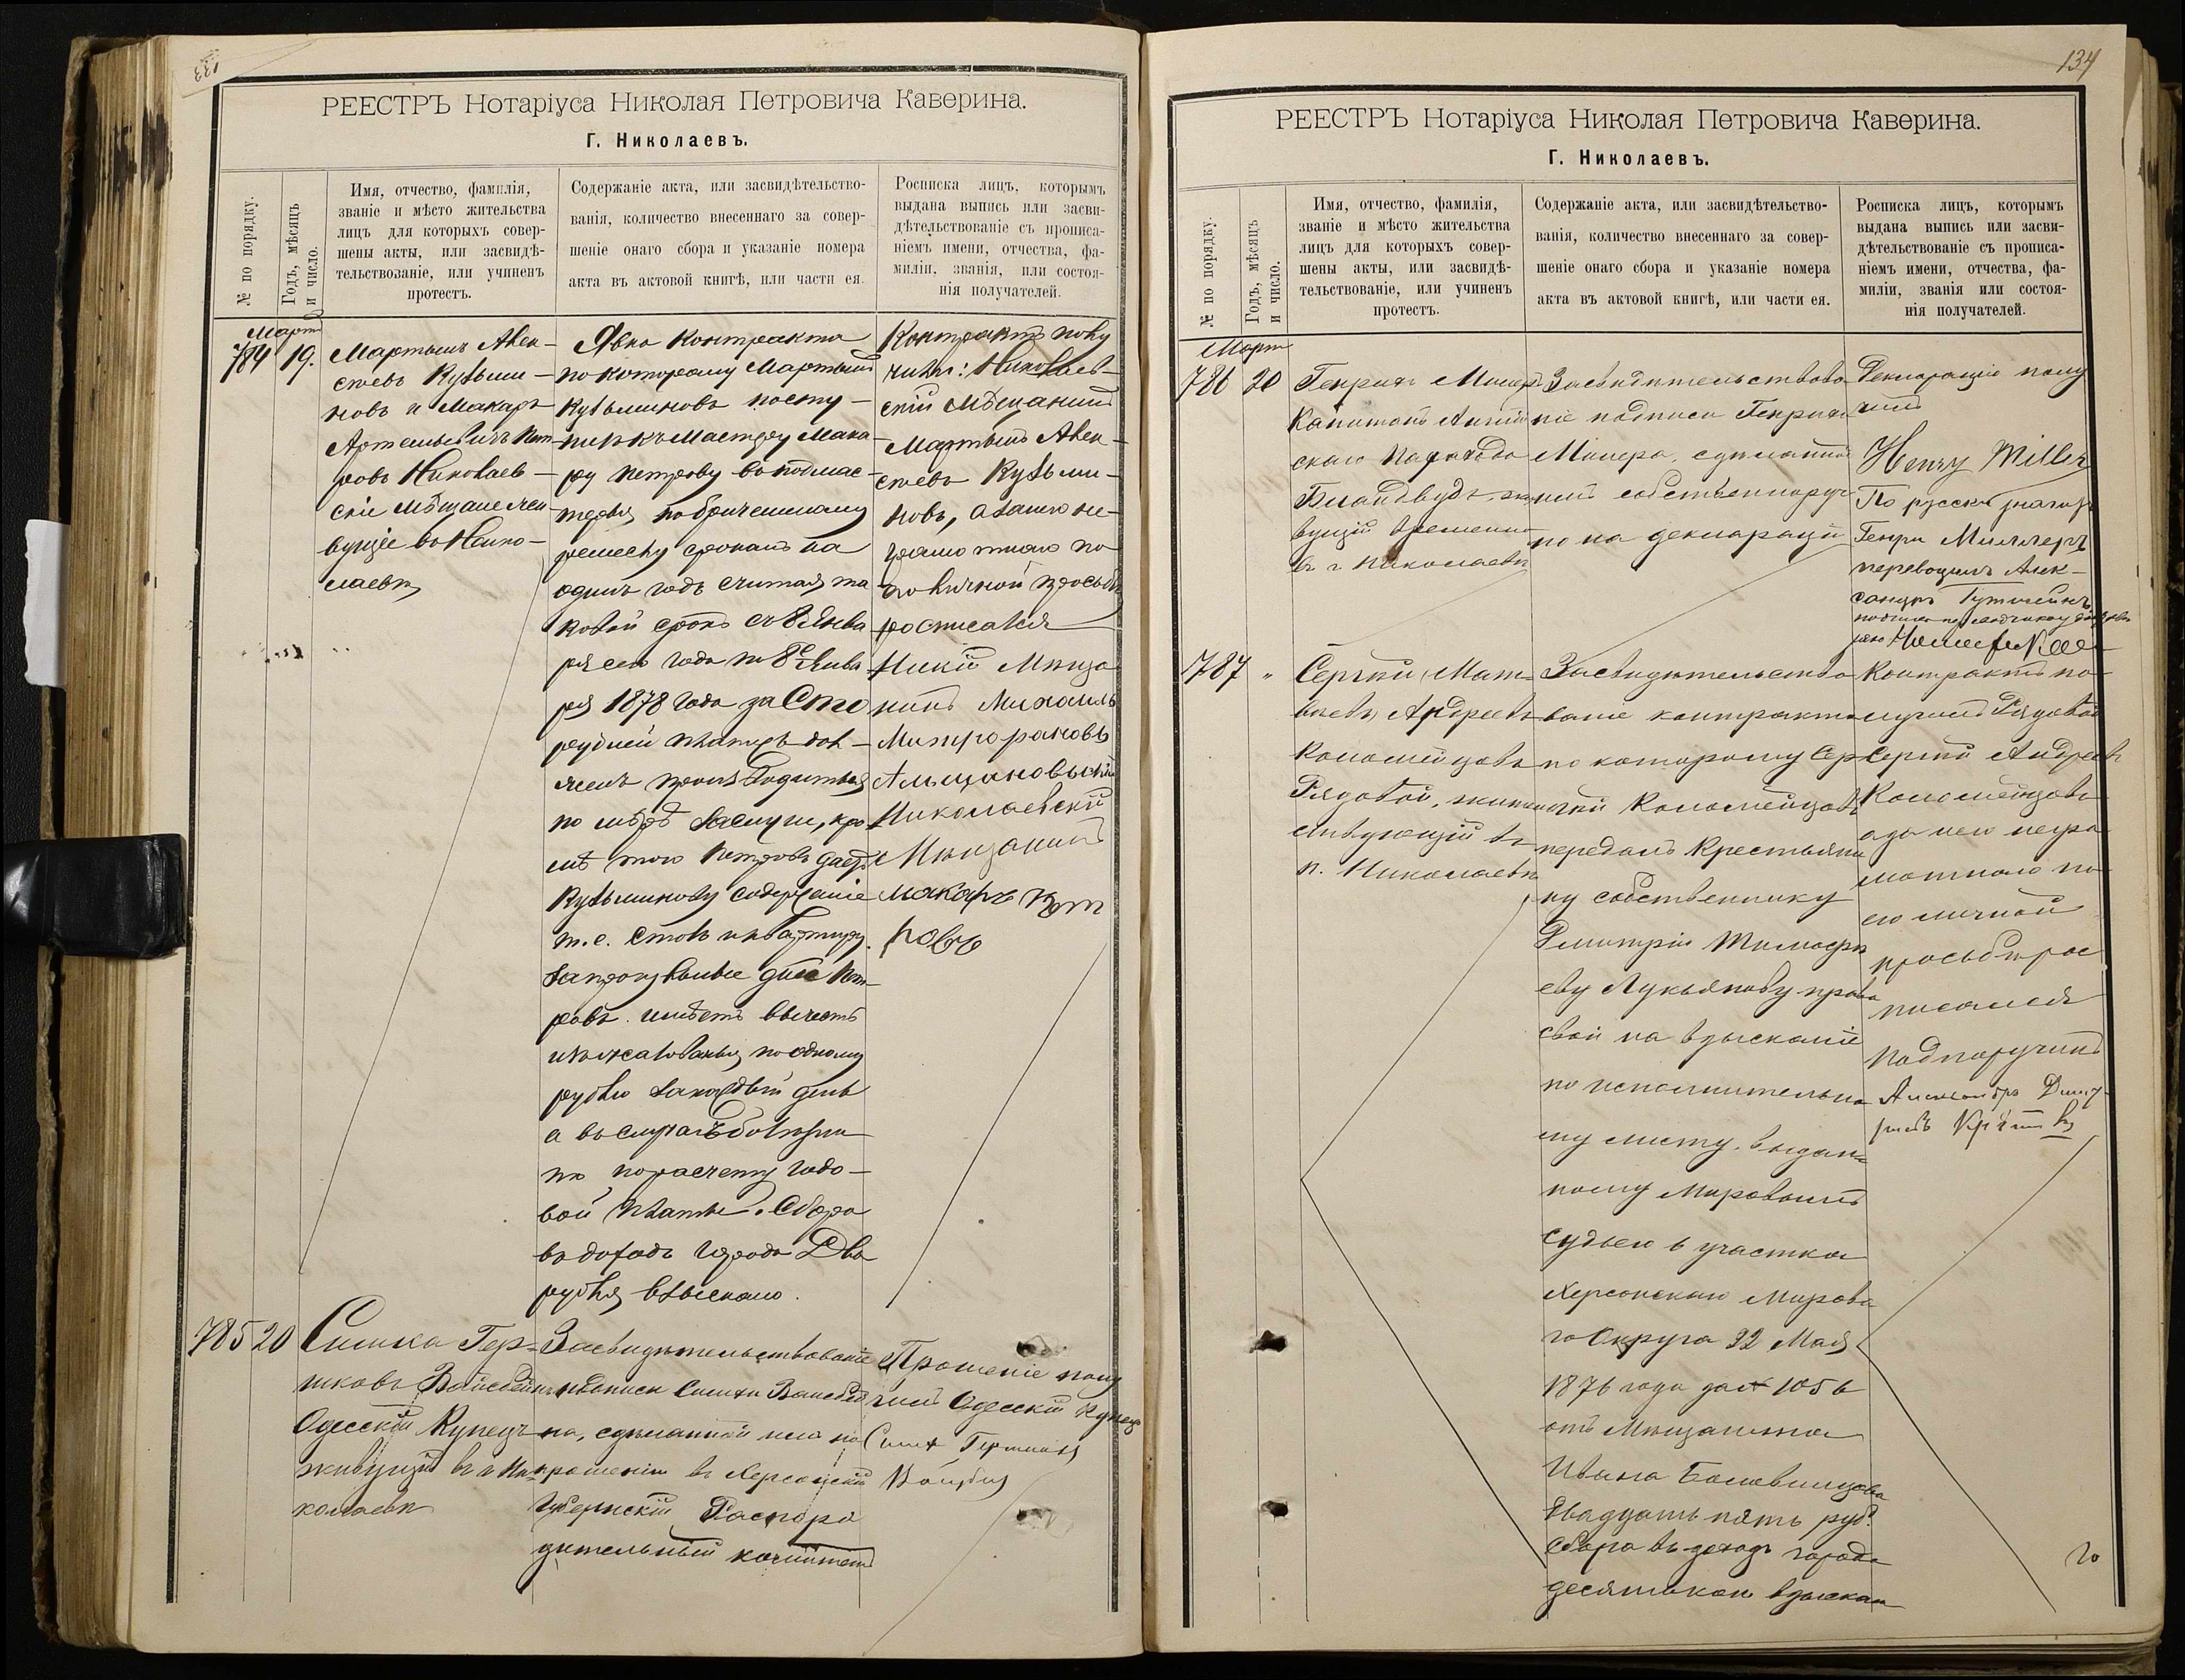 133
РЕЕСТРЪ Нотаріуса Николая Петровича Каверина.
Г. Николаевъ.
№ по порядку.
Годъ, мѣсяцъ
и число.
Имя, отчество, фамилія,
званіе и мѣсто жительства
лицъ для которыхъ совер-
шены акты, или засвидѣ-
тельствованіе, или учиненъ
протестъ.
Содержаніе акта, или засвидѣтельство-
ванія, количество внесеннаго за совер-
шеніе онаго сбора и указаніе номера
акта въ актовой книгѣ, или части ея.
Росписка лицъ, которымъ
выдана выпись или засви-
дѣтельствованіе съ прописа-
ніемъ имени, отчества, фа-
миліи, званія, или состоя-
нія получателей.
Мартъ
784 19.
Мартынъ Авек-
сѣевъ Кузьми-
новъ и Макаръ
Артемьевичъ Пет-
ровъ Николаев-
скіе мѣщане жи-
вущіе въ Нико-
лаевѣ
Явка контракта
по которому Мартынъ
Кузьминовъ посту-
пилъ къ мастеру Мака-
ру Петрову въ подмас-
терья по бричешному
ремеслу срокомъ на
одинъ годъ считая та
ковой срокъ съ 8 Янва
ря сего года по 8е Янва
ря 1878 года за Сто
рублей платежъ дол-
женъ производиться
по мѣрѣ заслуги, кро
мѣ того Петровъ даетъ
Кузьминову содержаніе
т.е. столъ и квартиру.
За прогульные дни Пет-
ровъ имѣетъ вычесть
изъ жалованья по одному
рублю за каждый день
а въ случаѣ болѣзни
то по расчету годо-
вой платы. Сбора
въ доходъ города Два
рубля взыскано.
Контрактъ полу
чилъ: Николаев-
скій Мѣщанинъ
Мартынъ Алек-
сѣевъ Кузьми-
новъ, а за него не-
грамотнаго по
его личной просьбѣ
росписался
Никій Мѣща
нинъ Михаилъ
Митрофановъ
Николаевскій
Мѣщанинъ
Макаръ Пет
ровъ
785 20
Симха Гер-
шковъ Вайсбейнъ
Одесскій Купецъ
живущій въ г. Ни-
колаевѣ
Засвидѣтельствованіе
подписи Симхи Вайсбей
на, сдѣланной имъ на
прошеніи въ Херсонскій
Губернскій Распоря
дительный комитетъ
Прошеніе полу
чилъ Одесскій Купецъ
134
РЕЕСТРЪ Нотаріуса Николая Петровича Каверина.
Г. Николаевъ.
№ по порядку.
Годъ, мѣсяцъ
и число.
Имя, отчество, фамилія,
званіе и мѣсто жительства
лицъ для которыхъ совер-
шены акты, или засвидѣ-
тельствованіе, или учиненъ
протестъ.
Содержаніе акта, или засвидѣтельство-
ванія, количество внесеннаго за совер-
шеніе онаго сбора и указаніе номера
акта въ актовой книгѣ, или части ея.
Росписка лицъ, которымъ
выдана выпись или засви-
дѣтельствованіе съ прописа-
ніемъ имени, отчества, фа-
миліи, званія или состоя-
нія получателей.
Мартъ
786 20
Генрихъ Милеръ
Капитанъ Англій
скаго парохода
вущій временно
въ г. Николаевѣ
Засвидѣтельствова
ніе подписи Генриха
Милера, сдѣланной
имъ собственноруч
но на деклараціи
Декларацію полу
чилъ
Henry Miller
По русски значитъ
Генри Миллеръ
переводилъ Алек-
сандръ
787 "
Сергѣй Мат-
вѣевъ Андреевъ
Коломейцовъ
Рядовой, жи
въ
г. Николаевѣ
Засвидѣтельство
ваніе контракта
по которому Сер
гѣй Коломейцовъ
передалъ Крестьяни
ну собственнику
Дмитрію Тимофѣ
еву Лукьянову права
свои на взысканіе
по исполнительно
му листу, выдан
ному Мировымъ
Судьею 6 участка
Херсонскаго Мирова
го Округа 22 Мая
1876 года за № 1056
отъ Мѣщанина
Ивана
Двадцать пять руб.
Сбора въ доходъ города
десять коп взыскан
го
Контрактъ по-
лучилъ Рядовой
Сергѣй Андреевъ
Коломейцовъ
а за него негра
мотнаго по
его личной
просьбѣ рос
писался
Подпоручикъ
Александръ